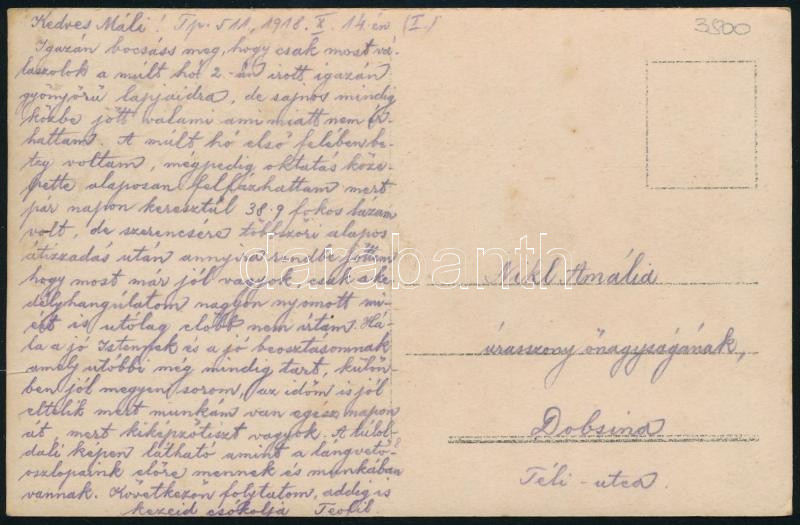 Kedves Máli! Tp. 511, 1918. X. 14-én (I.)
3500
Igazán bocsáss meg, hogy csak most vá-
laszolok a múlt hó 2-án írott igazán
gyönyörű lapjaidra, de sajnos mindig
közbe jött valami ami miatt nem ír-
hattam. A múlt hó első felében be-
teg voltam, mégpedig oktatás köze-
pette alaposan felfázhattam mert
pár napon keresztül 38-9 fokos lázam
volt, de szerencsére többszöri alapos
átizzadás után annyira rendbe jöttem
hogy most már jól vagyok, csak a ke-
délyhangulatom nagyon nyomott mi-
ért is utólag előbb nem írtam. Há-
la a jó Istennek és a jó beosztásomnak
amely utóbbi meg mindig tart, külön-
ben jól megyen sorom, az időm is jól
eltelik mert munkám van egesz napon
át mert kiképzőtiszt vagyok. A túlol-
dali képen látható amint a lángvető-
oszlopaink előre mennek és munkában
vannak. Következőn folytatom, addig is
kezeid csókolja Teofil
darabanth
Nikl Amália
úrasszony őnagyságának,
Dobsina
Téli-utca.